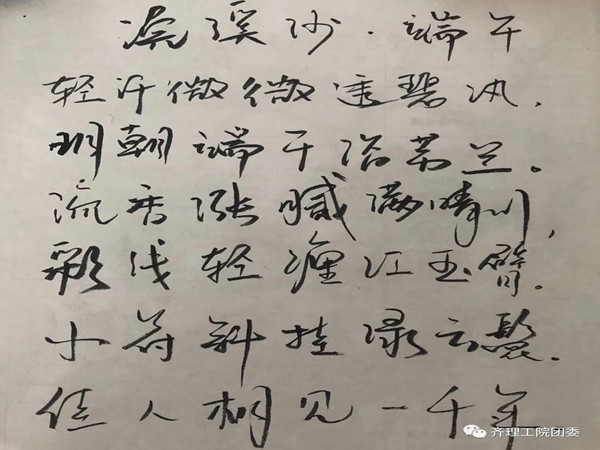 浣溪沙·端午
轻汗微微透碧纨,
明朝端午浴芳兰。
流香涨腻满晴川,
彩线轻缠红玉臂.
小符斜挂绿云鬟.
佳人相见一千年
齐理工院团委